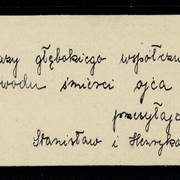 azy głębokiego współczu
wodu śmierci ojca
przesyłaj
Stanisław i Henryk